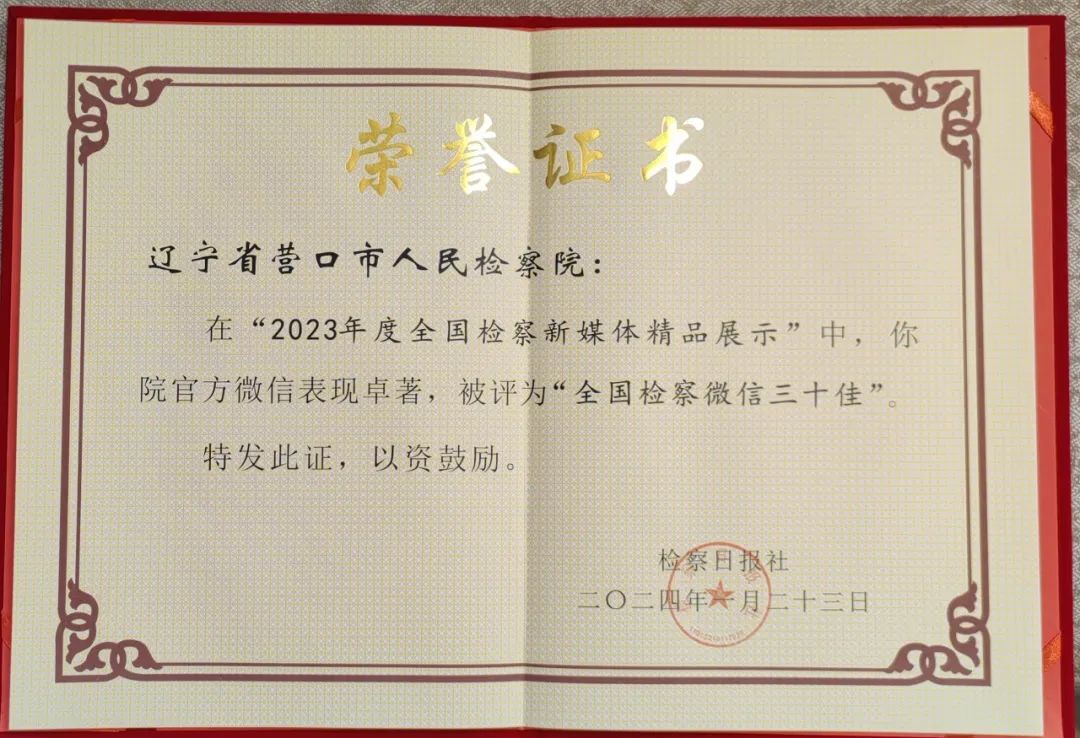 荣誉证书
辽宁省营口市人民检察院：
在“2023年度全国检察新媒体精品展示”中，你
院官方微信表现卓著，被评为“全国检察微信三十佳”。
特发此证，以资鼓励。
检察日报社
二〇二四年一月二十三日